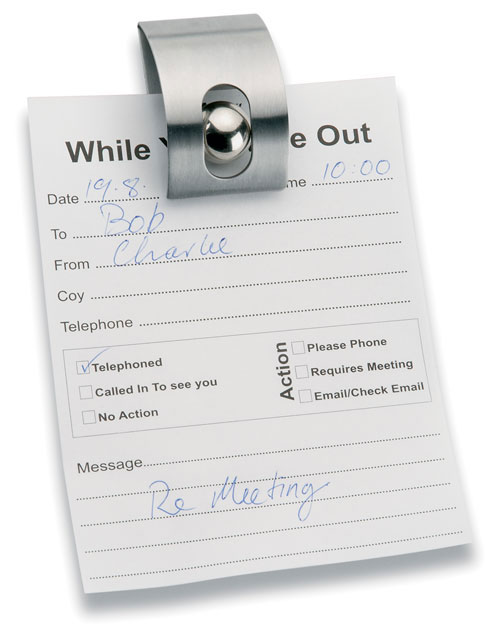 While Y e Out
Date 19.8. me 10:00
To Bob
From Charlie
Coy
Telephone
Telephoned
Called In To see you
No Action
Action
Please Phone
Requires Meeting
Email/Check Email
Message
Re Meeting